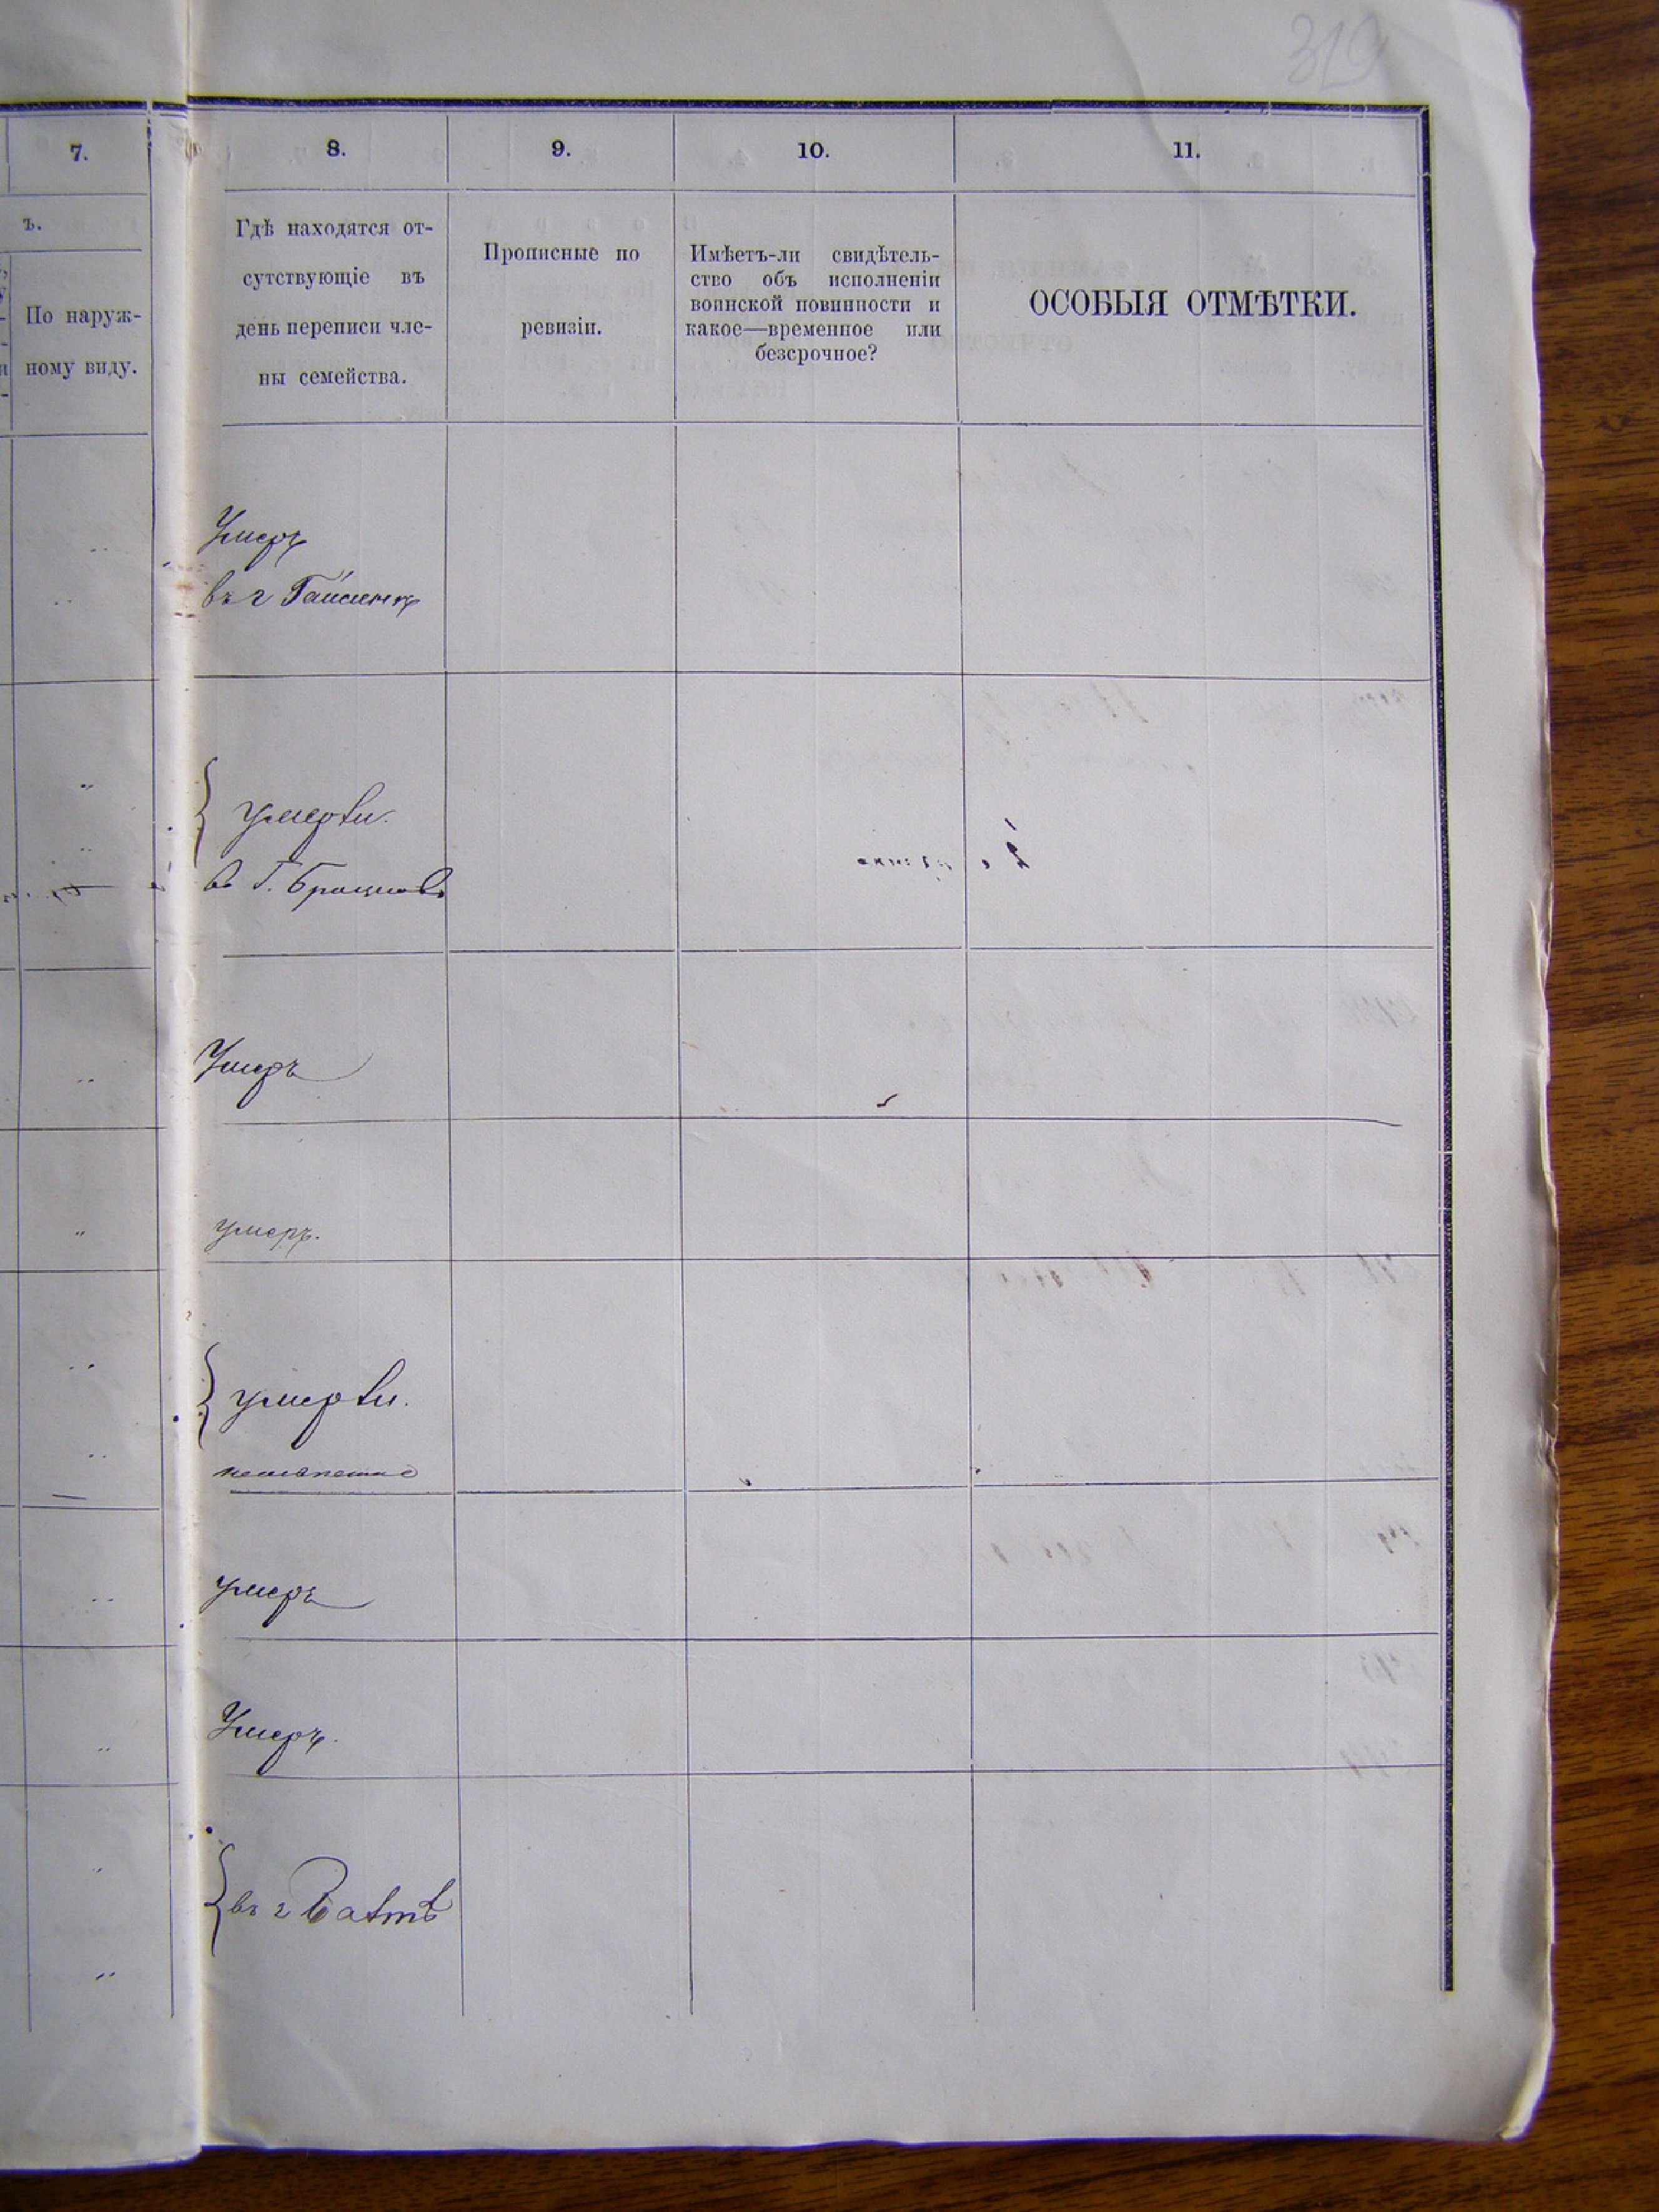 319
7.
8.
9.
10.
11.
ъ.
По наруж-
ному виду.
Гдѣ находятся от-
сутствующіе въ
день переписи чле-
ны семейства.
Прописные по
ревизіи.
Имѣетъ-ли свидѣтель-
ство объ исполненіи
воинской повинности и
какое—временное или
безсрочное?
ОСОБЫЯ ОТМѢТКИ.
Умеръ
въ г Гайсинѣ
умерли.
въ г. Брацлавѣ
Умеръ
умеръ.
умерли.
умеръ
Умеръ.
въ г Балтѣ